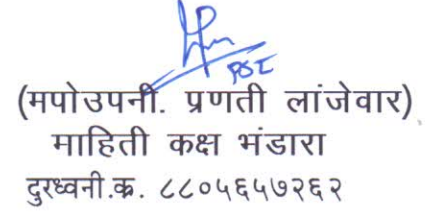 PSI
(मपोउपनी. प्रणती लांजेवार)
माहिती कक्ष भंडारा
दुरध्वनी.क्र. ८८०५६५७२६२